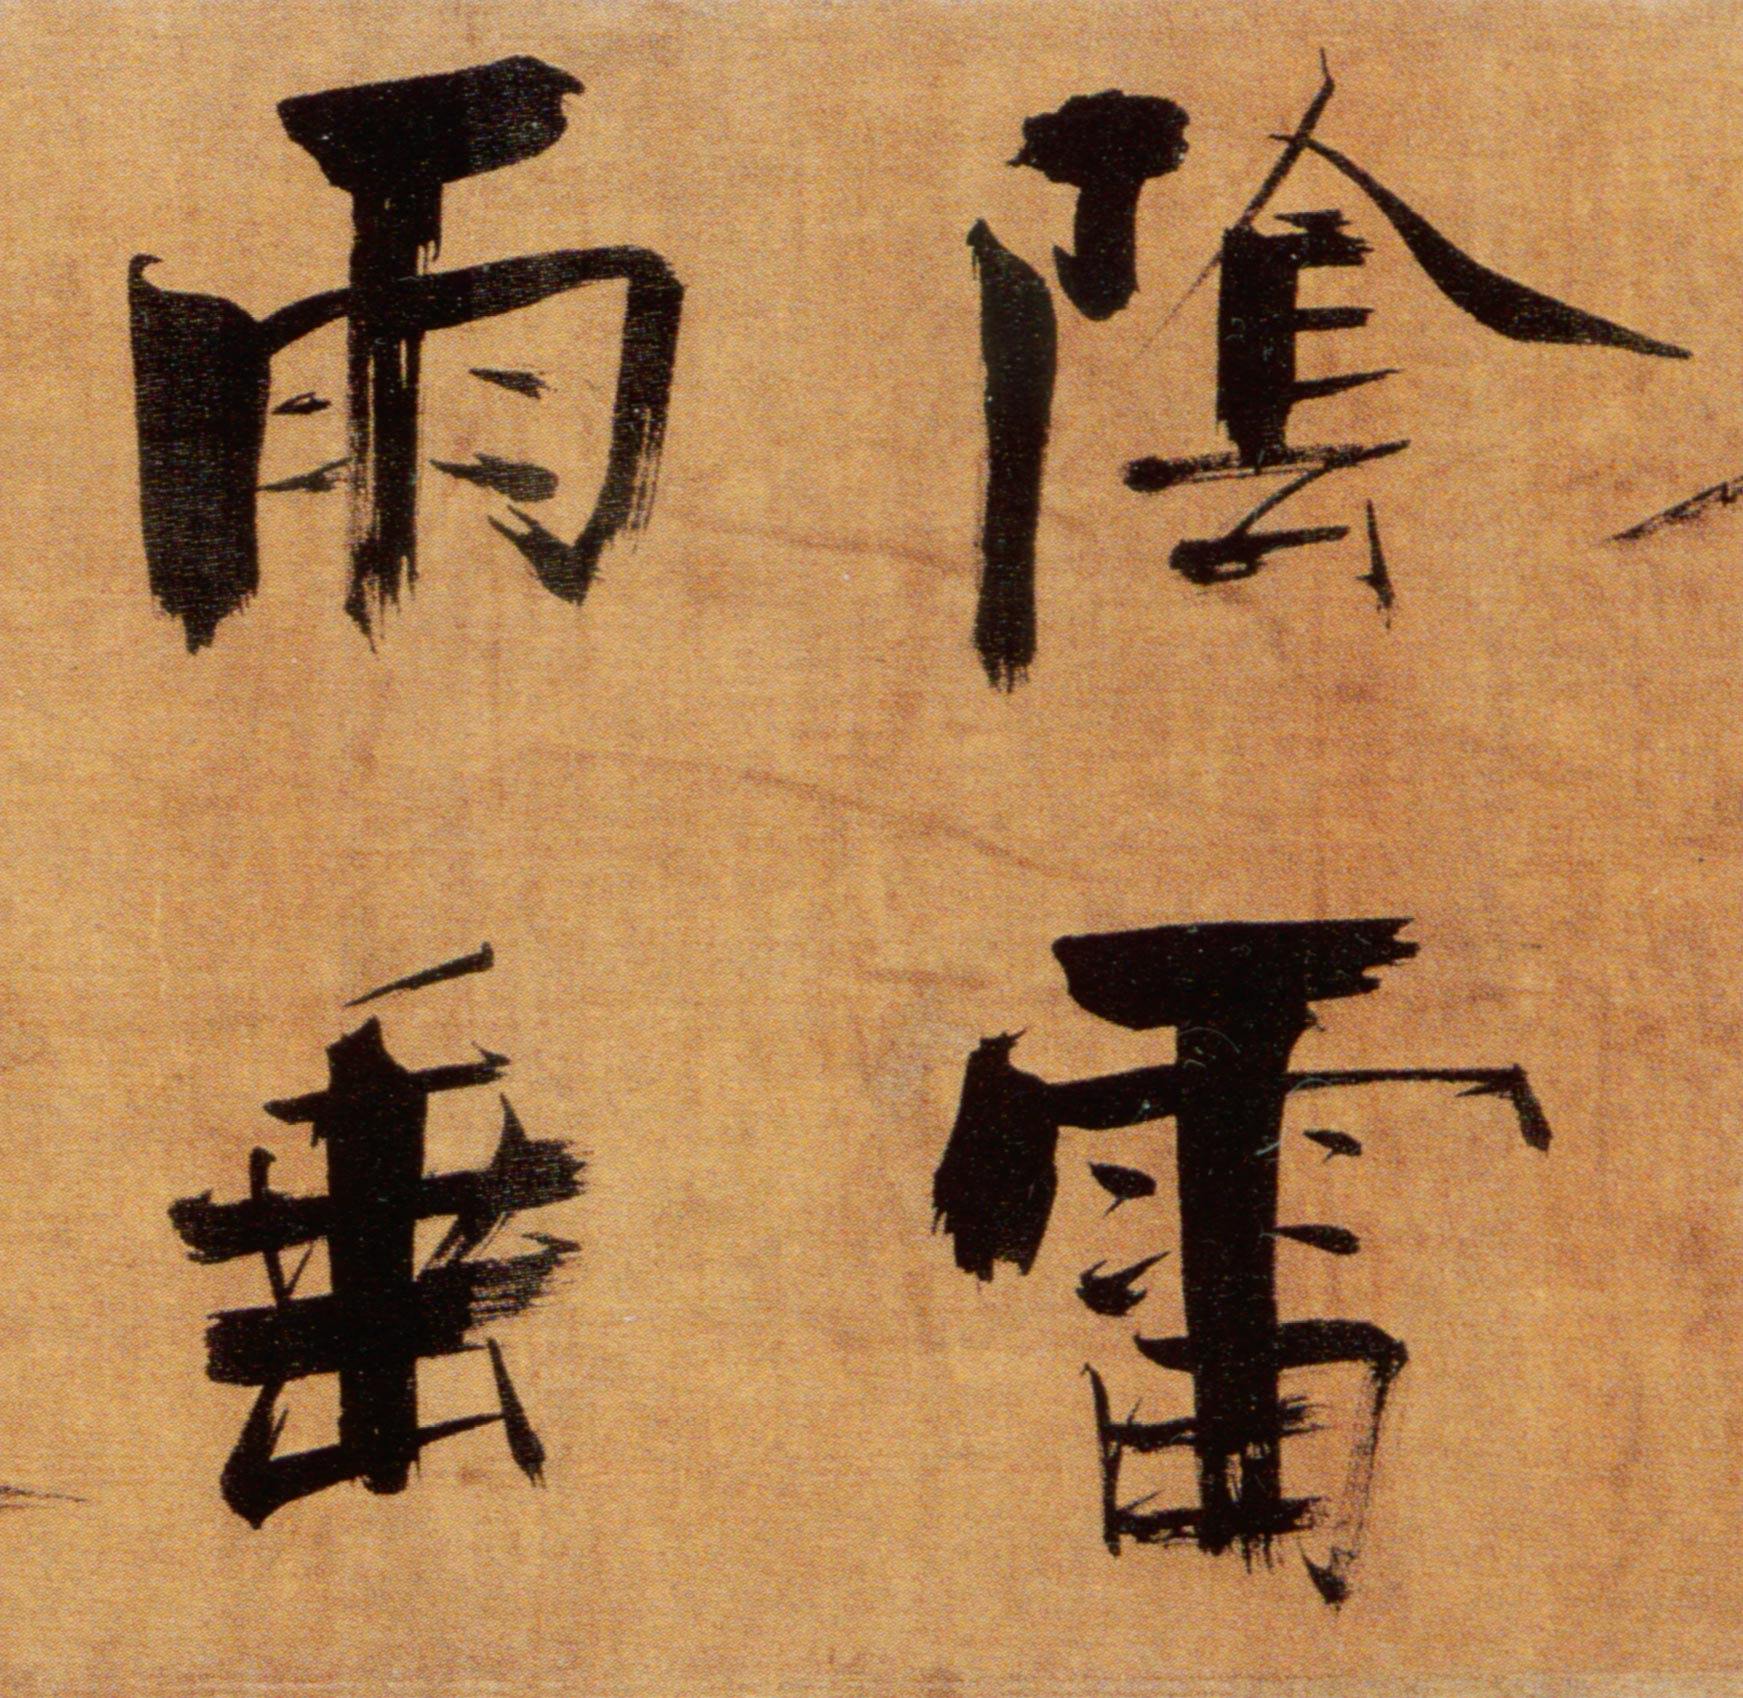 陰雷
雨垂